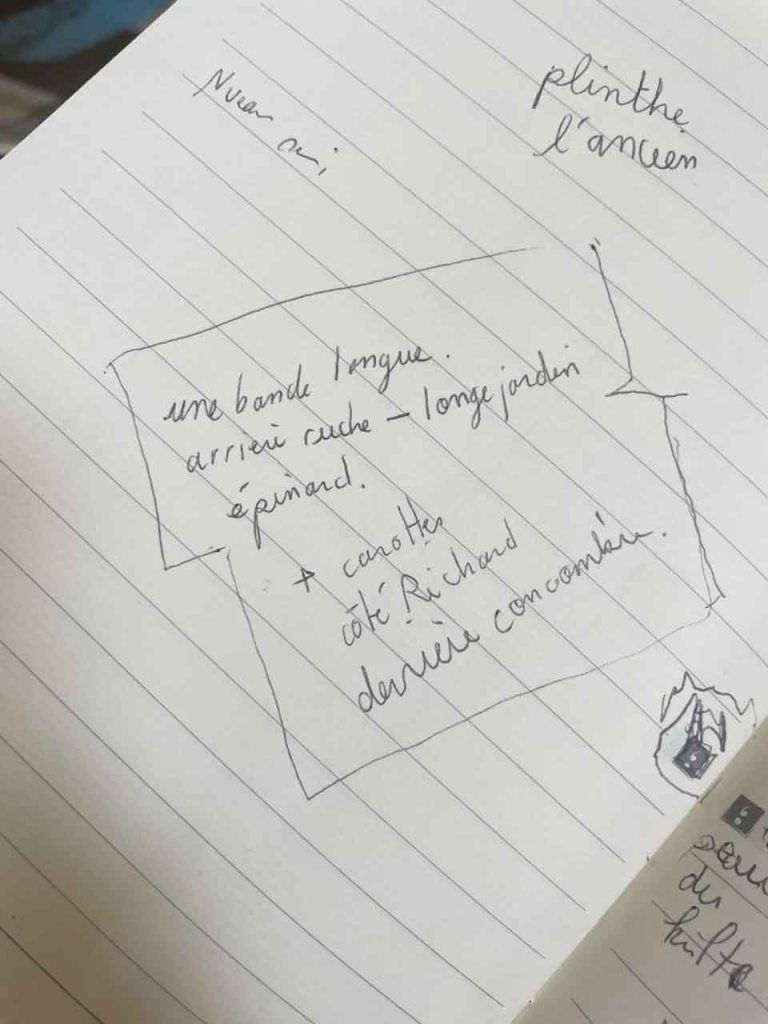 plinthe
l'ancien
une bande longue.
arrière ruche – longe jardin
épinard.
+ carottes
côté Richard
derrière concombre.
du